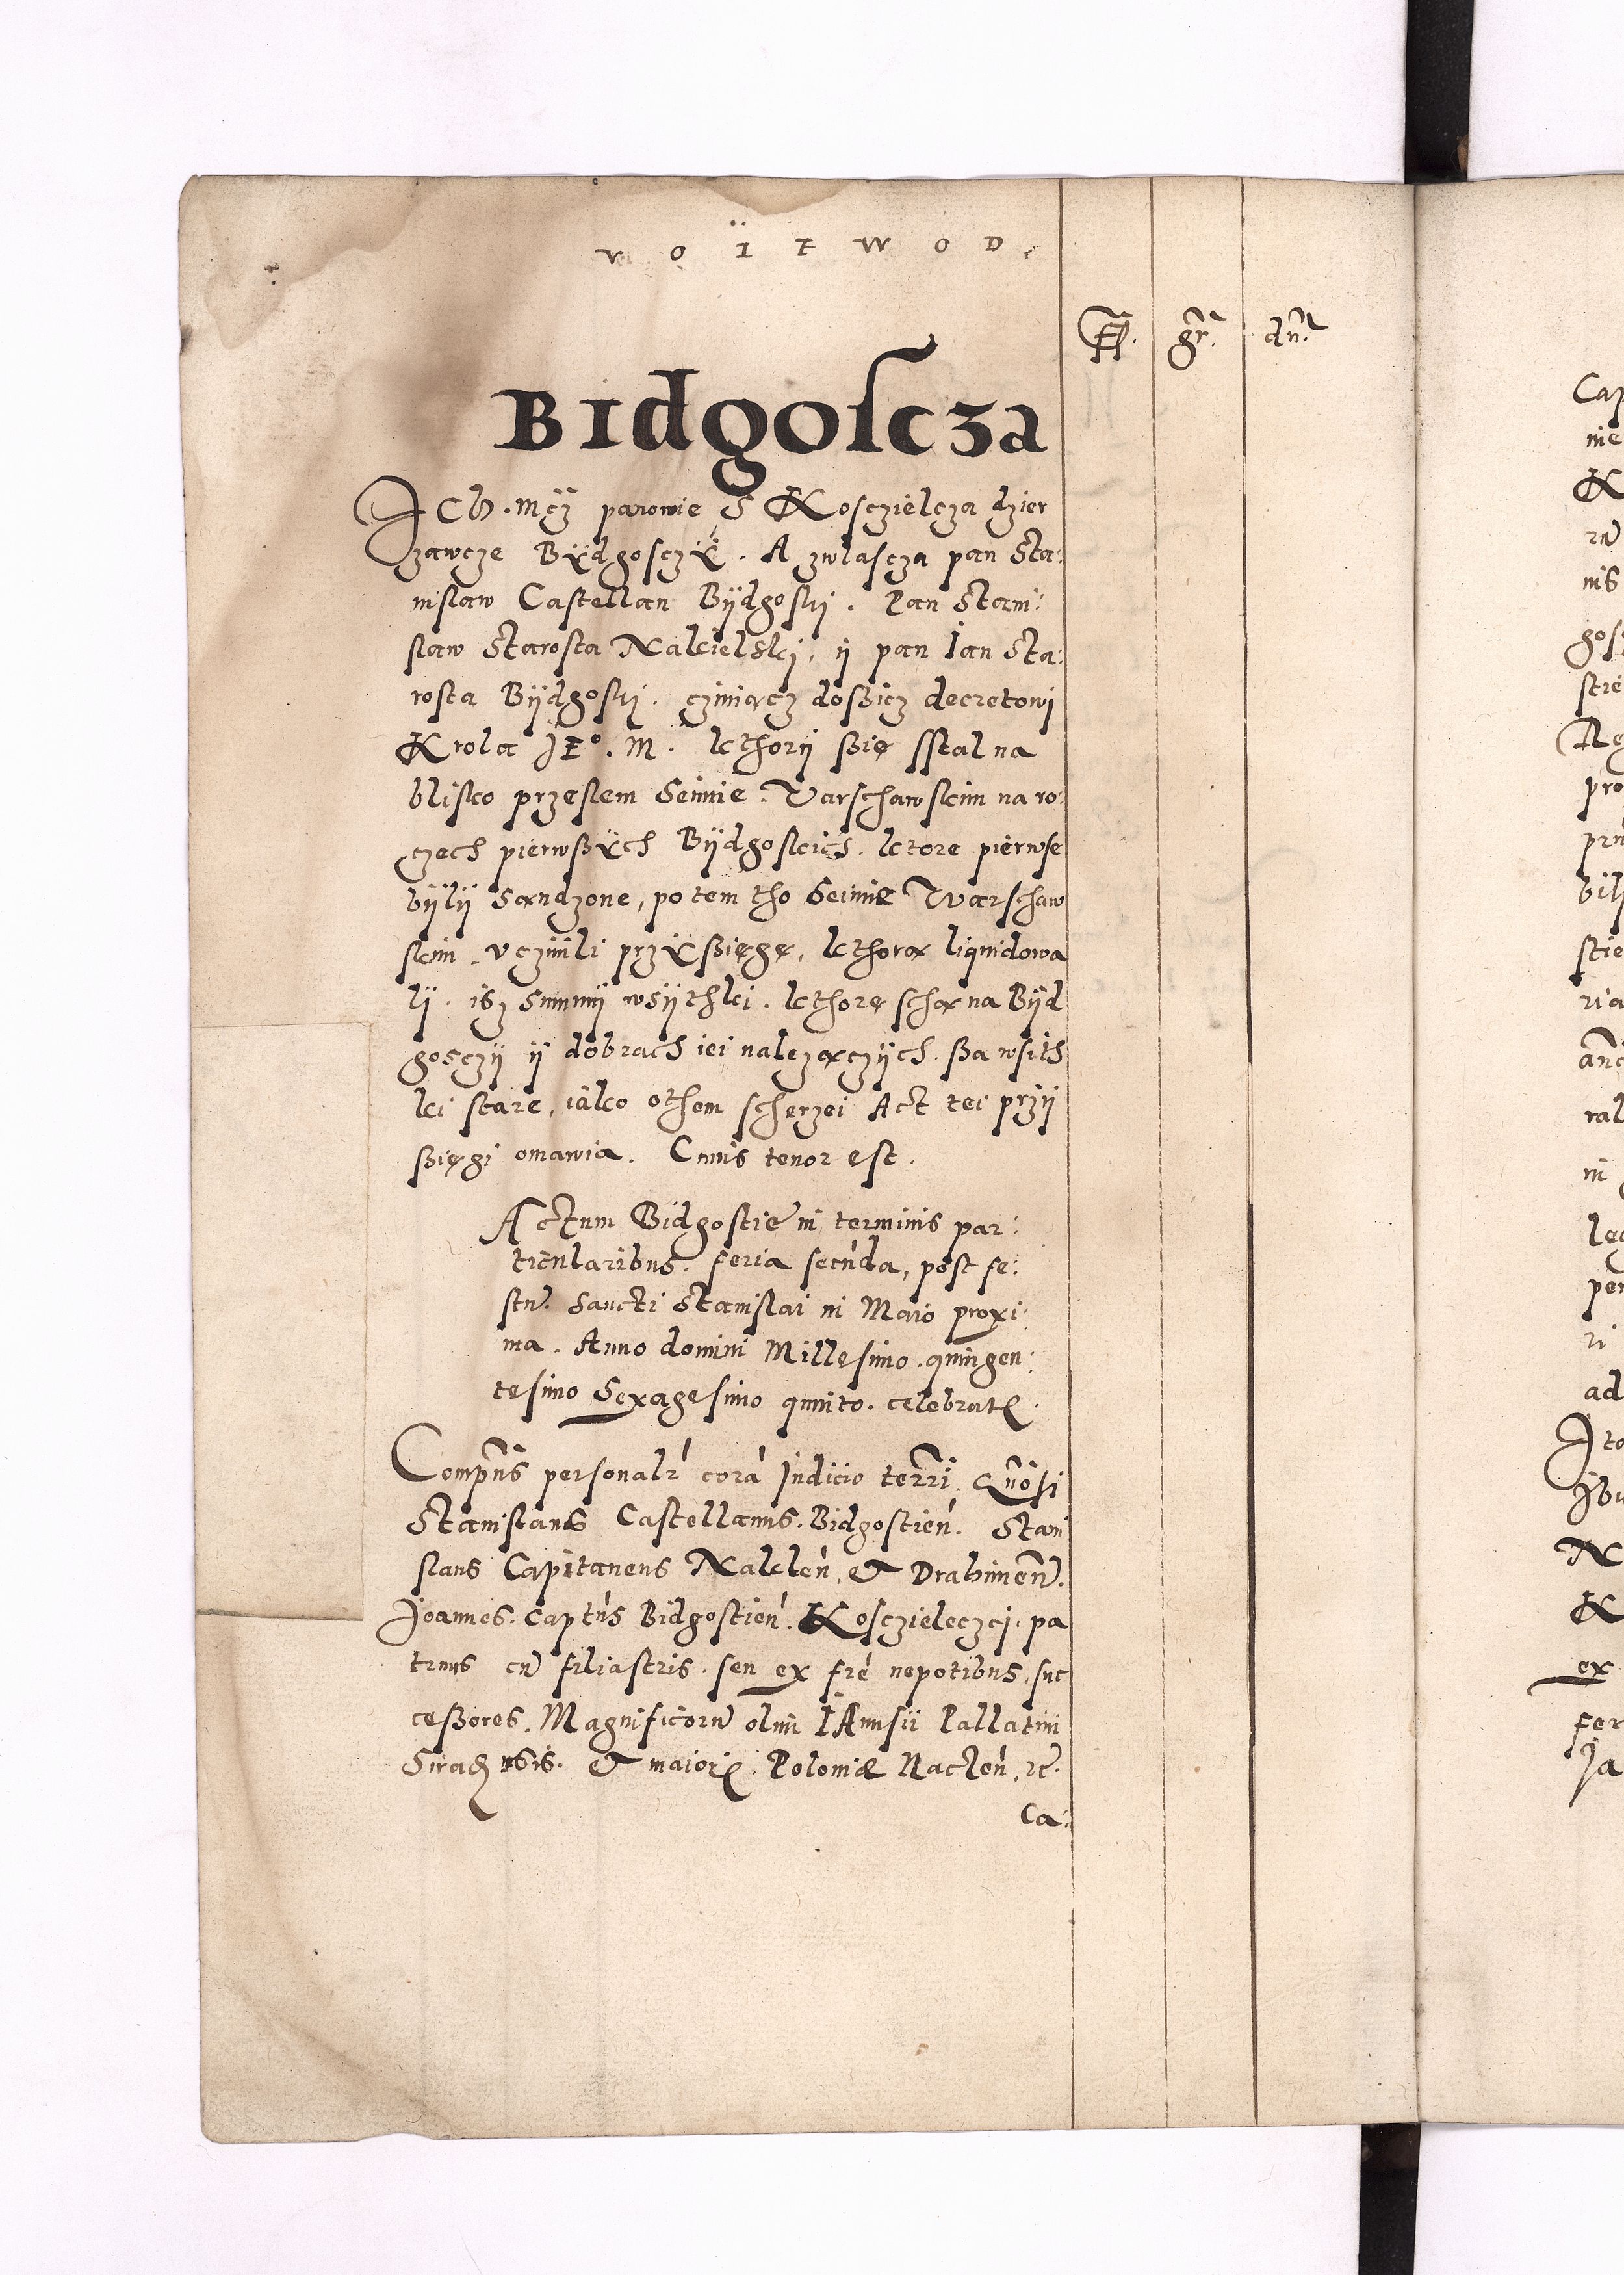 VOÏEWOD.
fl. gr. dn.
BIdgoſcza
Ich. Mczÿ panowie S Kosczielcza dzier
zawcze Bÿdgosczÿ. A zwlascza pan Sta:
nislaw Castellan Bÿdgoski. Pan Stani:
slaw Starosta Nakielski, ÿ pan Ian Sta:
rosta Bÿdgoski. czÿniączÿ dosßicz decretowi
Krola JEº. M. kthorÿ ßię sstal na
blisko przeslem Seimie. Varschawskim na ro:
czech pierwßÿch Bÿdgoskich. ktore pierwse
bÿlÿ Sandzone, po tem tho Seimie Warschaw
skim. vczinili przÿßięgę, kthorą liquidowa
lÿ. isz Summÿ wsÿthki. kthorę schą na Bÿd
gosczÿ ÿ dobrach iei nalezączÿch. ßa wsith
ki stare, iako othem scherzei Act tei przÿ
ßięgi omawia. Cuius tenor est.
Actum Bidgostiæ in terminis par:
ticularibus. feria secunda, post fe:
stu. Sancti Stanislai in Maio proxi:
ma. Anno domini Millesimo. quingen:
tesimo Sexagesimo quinto. celebratis.
Compñs personalr corã Iudicio terri. Gñosi
Stanislaus Castellanus. Bidgostieñ. Stani
slaus Capitaneus Nakleñ, et Drahimeñ.
Joannes. captñs Bidgostieñ. Kosczieleczci. pa
truus cũ filiastris. seu ex fre nepotibus. suc
ceßores. Magnificorũ olim IAnusii Pallatini
Siradzensis. et maioris. Poloniæ Nacleñ. etc.
Ca:
Cap
nie
K
nis
gos
stie
pro
ria
ral
in
per
ri
ad
N
K
ex
fer
Ja